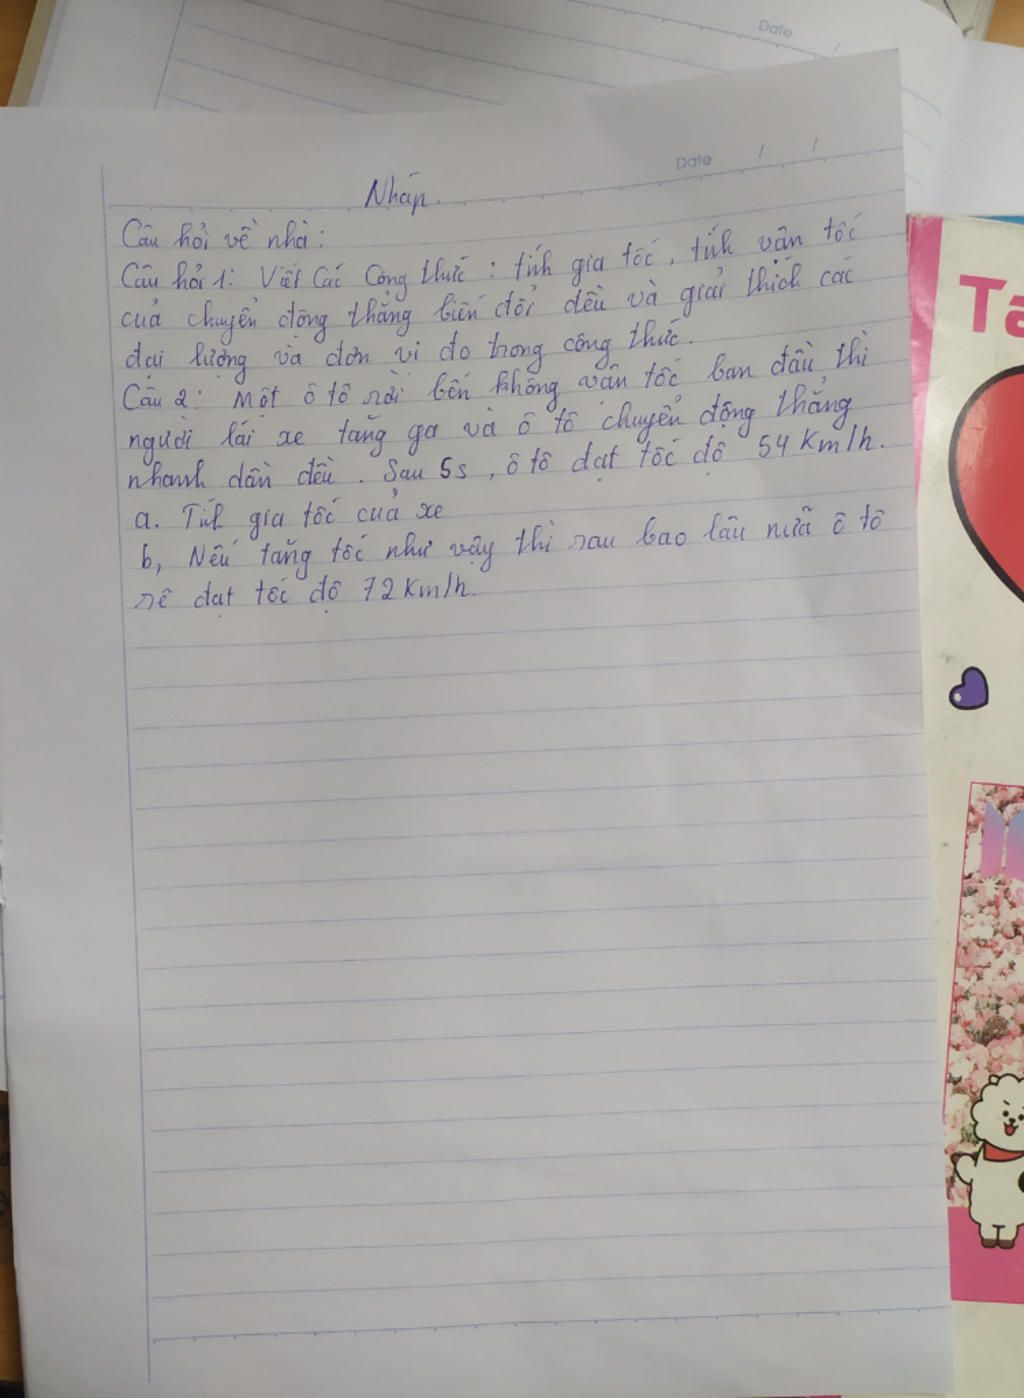 Date
Date / /
Nháp.
Câu hỏi về nhà:
Câu hỏi 1: Viết Các Công thức: tính gia tốc, tính vận tốc
của chuyển động thẳng biến đổi đều và giải thích các
đại lượng và đơn vị đo trong công thức.
Câu 2: Một ô tô rời bến không vận tốc ban đầu thì
người lái xe tăng ga và ô tô chuyển động thẳng
nhanh dần đều. Sau 5s, ô tô đạt tốc độ 54 Km/h.
a. Tính gia tốc của xe
b, Nếu tăng tốc như vậy thì sau bao lâu nữa ô tô
sẽ đạt tốc độ 72 Km/h.
Ta